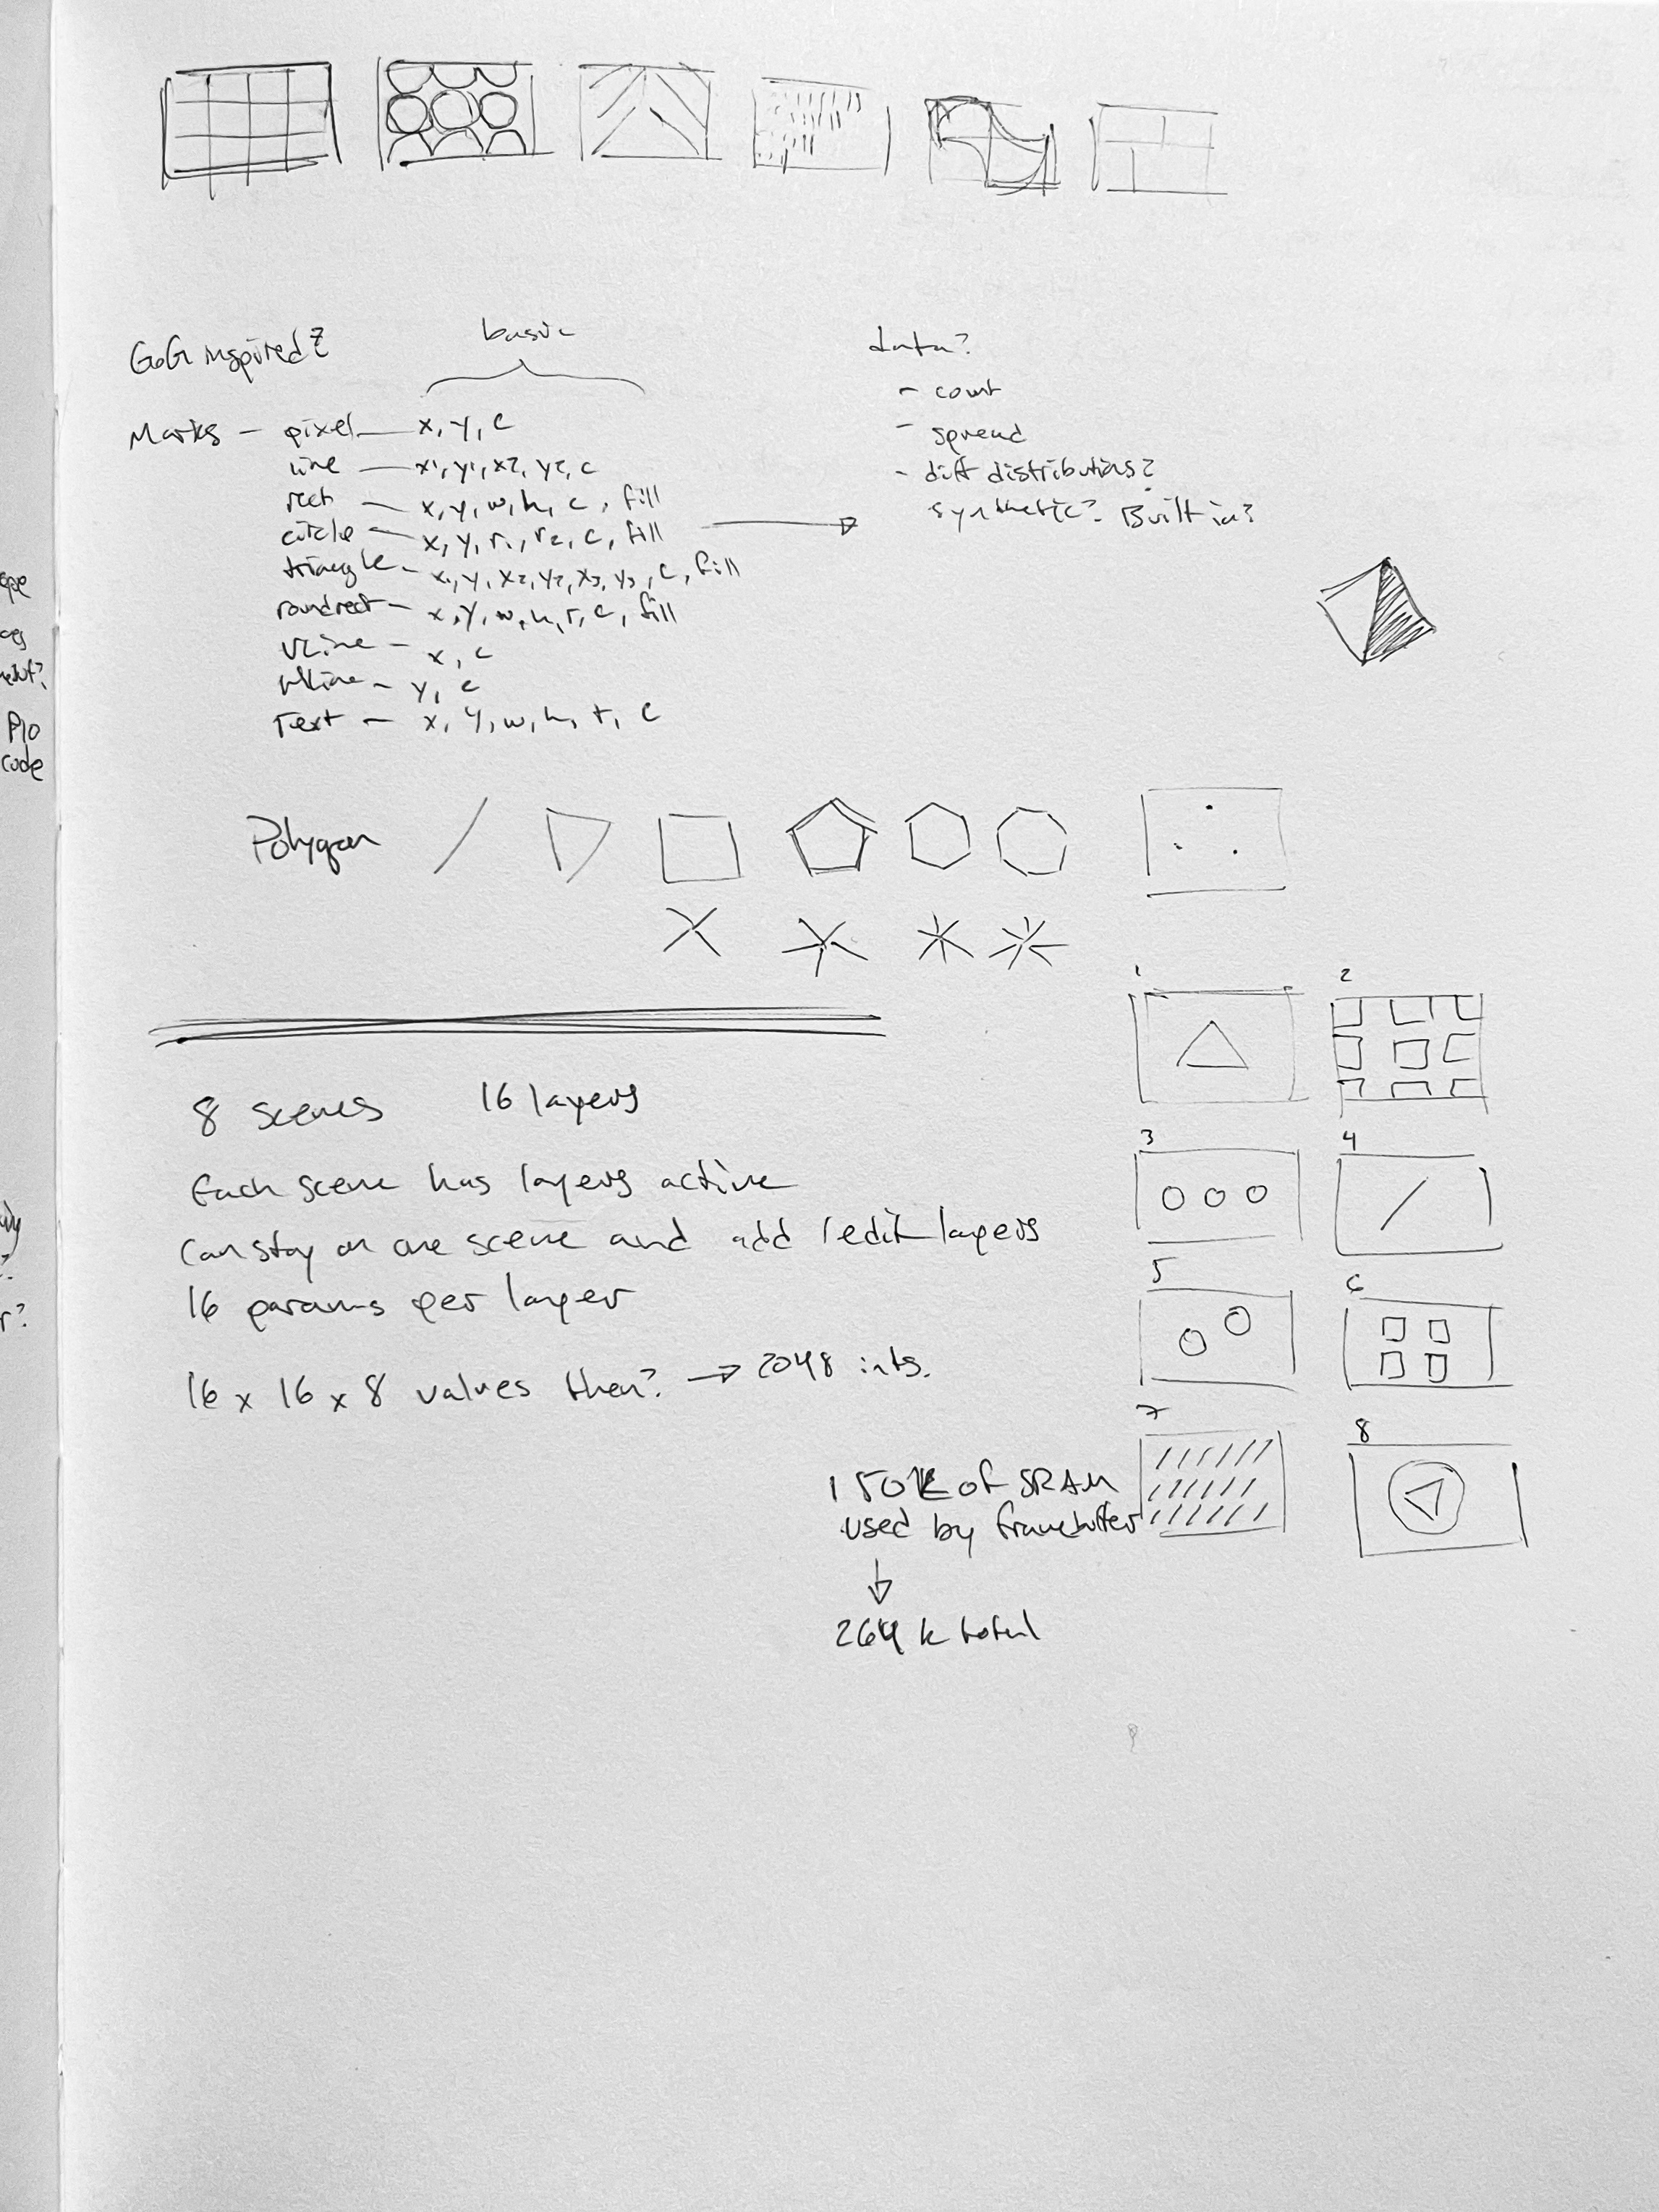 GoG inspired?
basic
Marks – pixel — x, y, c
line — x1, y1, x2, y2, c
rect — x, y, w, h, c, fill
circle — x, y, r1, r2, c, fill
triangle – x1, y1, x2, y2, x3, y3, c, fill
roundrect – x, y, w, h, r, c, fill
vline – x, c
hline – y, c
Text – x, y, w, h, t, c
data?
- count
- spread
- diff distributions?
synthetic? Built in?
Polygon
8 scenes 16 layers
Each scene has layers active
Can stay on one scene and add / edit layers
16 params per layer
16 x 16 x 8 values then? → 2048 ints.
150K of SRAM
used by framebuffer
↓
264 k total
1
2
3
4
5
6
7
8
PIO
code
r?